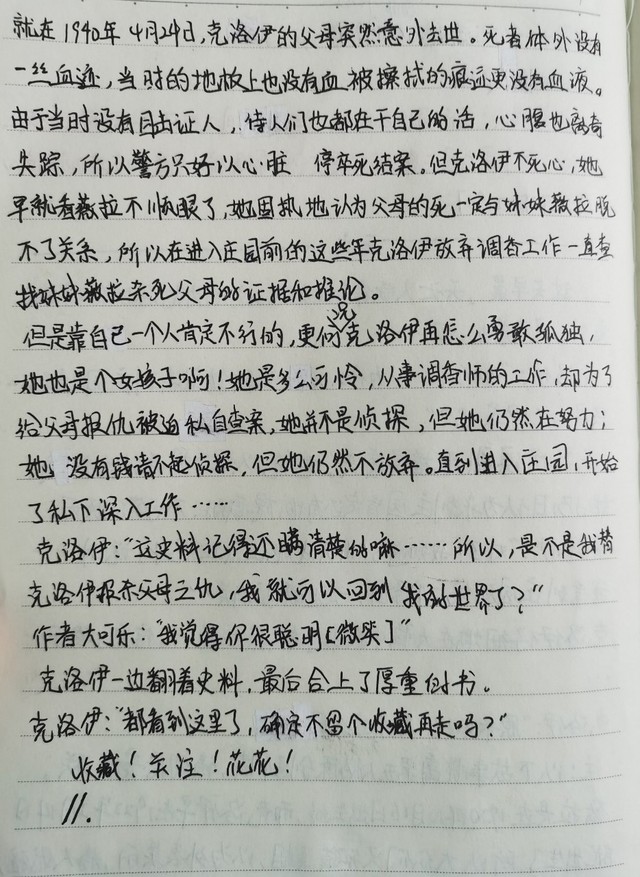 就在1940年4月24日,克洛伊的父母突然意外去世。死者体外没有
一丝血迹,当时的地板上也没有血被擦拭的痕迹更没有血液。
由于当时没有目击证人,侍人们也都在干自己的活,心腹也离奇
失踪,所以警方只好以心脏 停卒死结案。但克洛伊不死心,她
早就看薇拉不顺眼了,她固执地认为父母的死一定与妹妹薇拉脱
不了关系,所以在进入庄园前的这些年克洛伊放弃调香工作一直查
找妹妹薇拉杀死父母的证据和推论。
但是靠自己一个人肯定不行的,更何况克洛伊再怎么勇敢孤独,
她也是个女孩子啊!她是多么可怜,从事调香师的工作,却为了
给父母报仇被迫私自查案,她并不是侦探,但她仍然在努力;
她 没有钱请不起侦探,但她仍然不放弃。直到进入庄园,开始
了私下深入工作……
克洛伊:“这史料记得还瞒清楚的嘛……所以,是不是我替
克洛伊报杀父母之仇,我就可以回到 我的世界了?”
作者大可乐:“我觉得你很聪明[微笑]”
克洛伊一边翻着史料,最后合上了厚重的书。
克洛伊:“都看到这里了,确定不留个收藏再走吗?”
收藏!关注!花花!
//.